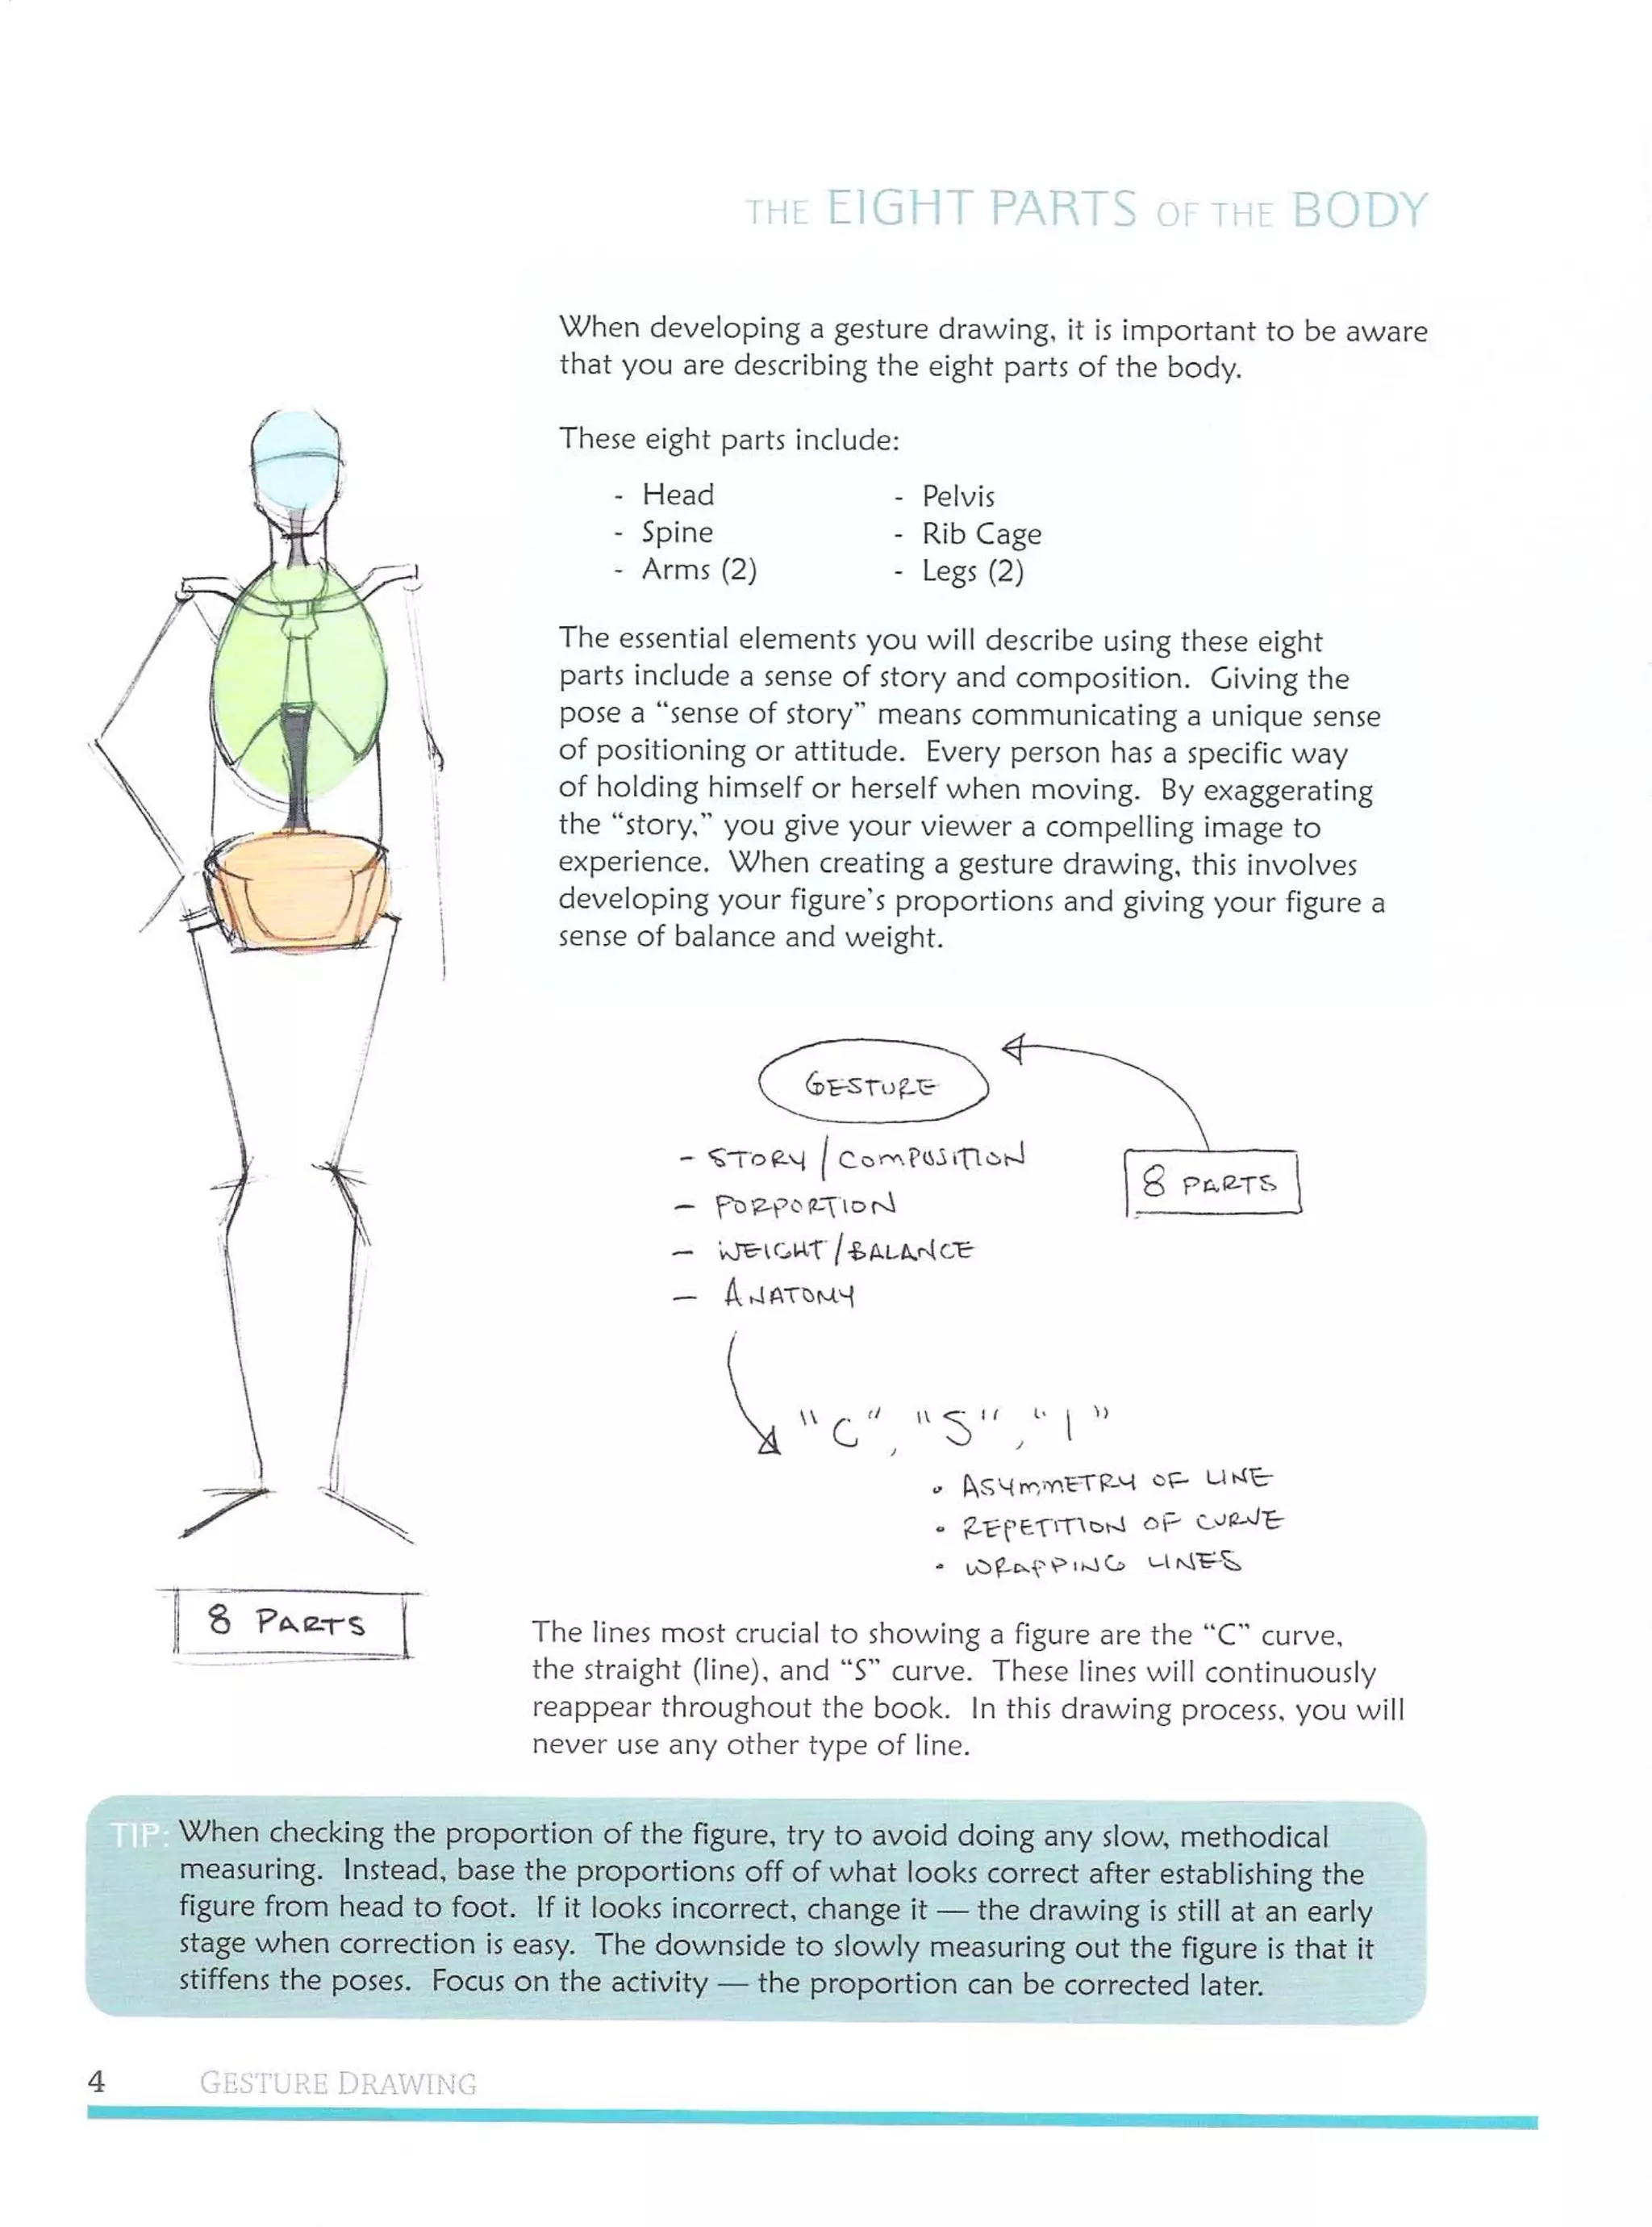 THE EIGHT PARTS OF THE BODY
When developing a gesture drawing, it is important to be aware
that you are describing the eight parts of the body.
These eight parts include:
- Head
- Spine
- Arms (2)
- Pelvis
- Rib Cage
- Legs (2)
The essential elements you will describe using these eight
parts include a sense of story and composition. Giving the
pose a “sense of story” means communicating a unique sense
of positioning or attitude. Every person has a specific way
of holding himself or herself when moving. By exaggerating
the “story,” you give your viewer a compelling image to
experience. When creating a gesture drawing, this involves
developing your figure's proportions and giving your figure a
sense of balance and weight.
GESTURE
- STORY / COMPOSITION
- PORPORTION
- WEIGHT / BALANCE
- ANATOMY
8 PARTS
"C", "S", "I"
• ASYMMETRY OF LINE
• REPETITION OF CURVE
• WRAPPING LINES
8 PARTS
The lines most crucial to showing a figure are the “C” curve,
the straight (line), and “S” curve. These lines will continuously
reappear throughout the book. In this drawing process, you will
never use any other type of line.
TIP: When checking the proportion of the figure, try to avoid doing any slow, methodical
measuring. Instead, base the proportions off of what looks correct after establishing the
figure from head to foot. If it looks incorrect, change it — the drawing is still at an early
stage when correction is easy. The downside to slowly measuring out the figure is that it
stiffens the poses. Focus on the activity — the proportion can be corrected later.
4 GESTURE DRAWING